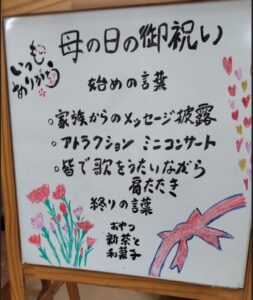 母の日の御祝い
いつも
ありがとう
始めの言葉
○家族からのメッセージ披露
○アトラクション ミニコンサート
○皆で歌をうたいながら
肩たたき
終りの言葉
おやつ
新茶と
和菓子